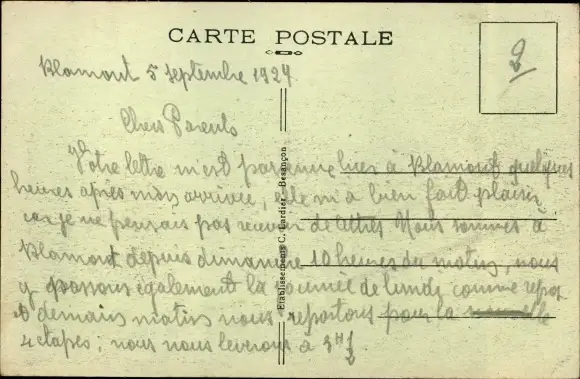 CARTE POSTALE
2
Blamont 5 Septembre 1927
Chers Parents
Votre lettre m'est parvenue hier à Blamont quelques
heures après mon arrivée, elle m'a bien fait plaisir
car je ne pensais pas recevoir de lettres. Nous sommes à
Blamont depuis dimanche 10 heures du matin, nous
y passons également la journée de lundi comme repos
et demain matin nous repartons pour la nouvelle
4 étapes ; nous nous leverons à 3H 1/2
Etablissements C. Lardier - Besançon